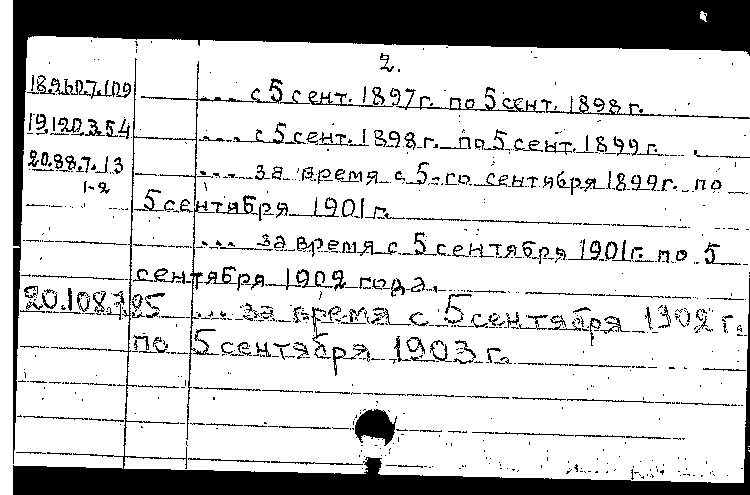 2.
18.260.7.109 ... с 5 сент. 1897г. по 5 сент. 1898 г.
19.120.3.54 ... с 5 сент. 1898г. по 5 сент. 1899г.
20.88.7.13 ... за время с 5-го сентября 1899г. по
1-2
5 сентября 1901 г.
... за время с 5 сентября 1901г. по 5
сентября 1902 года.
20.108.7.25 ... за время с 5 сентября 1902 г.
по 5 сентября 1903 г.